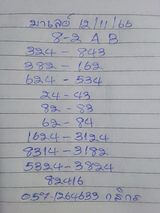 มาเลย์ 12/11/65
8-2 A B
324 - 843
382 - 162
624 - 534
24 - 43
82 - 83
62 - 84
1624 - 3124
8314 - 3182
5324 - 3824
82416